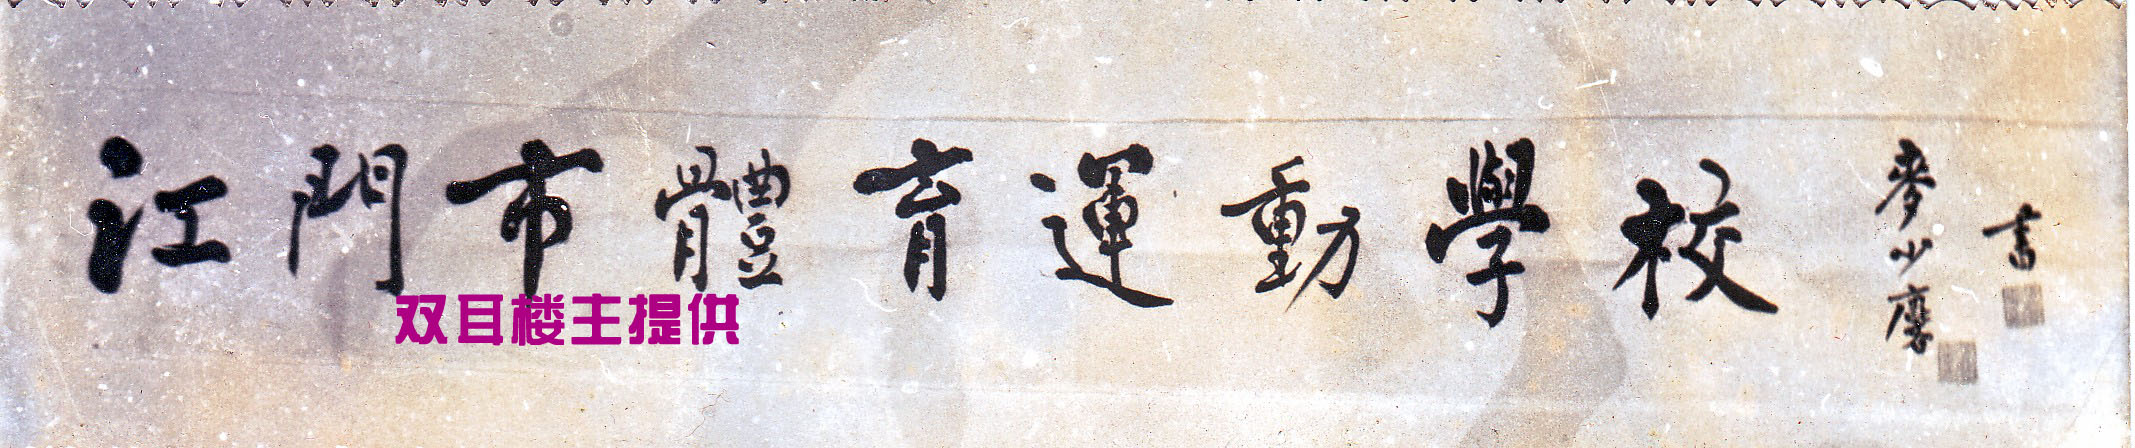 江門市體育運動學校
麥少麐
書
双耳楼主提供